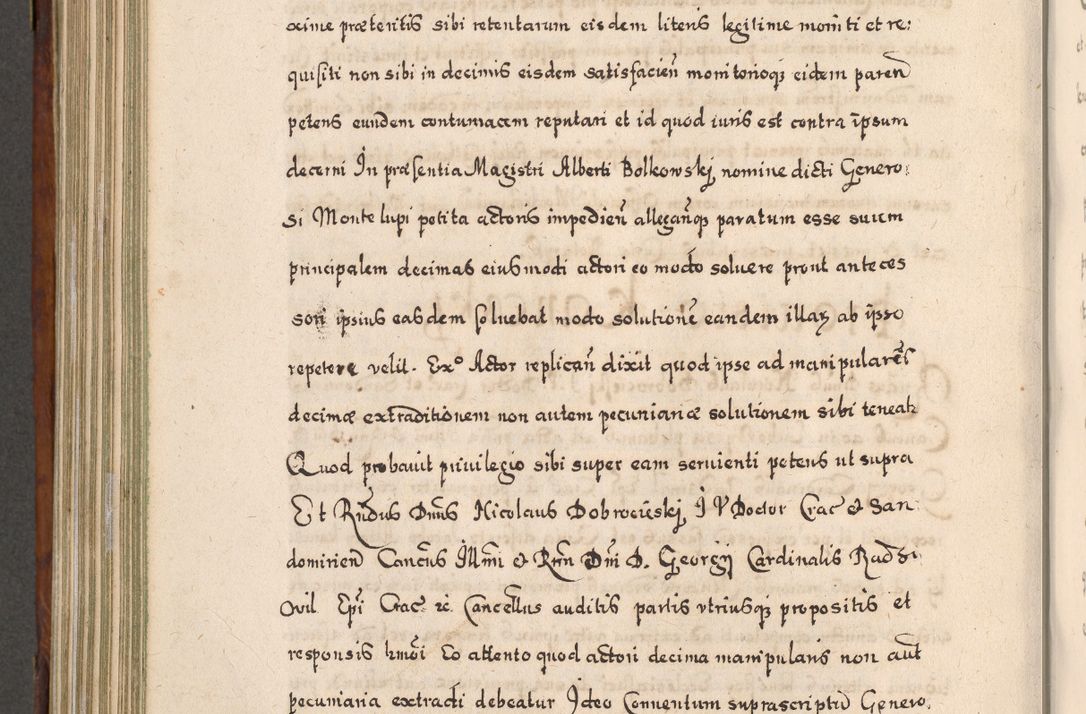 oxime præteritis sibi retentarum eisdem literis legitime moniti et re:
quisiti non sibi in decimis eisdem satisfacien̄ monitorioq̢ eidem paren̄
petens eundem contumacem reputari et id quod iuris est contra ip̄sum
decerni In præsentia Magistri Alberti Bolkowskj nomine dicti Genero:
si Monte lupi petita actoris impedien̄ allegan̄q̢ paratum esse suum
principalem decimas eiusmodi actori eo modo soluere prout anteces
sori ipsius easdem soluebat modo solutionē eandem illaꝝ ab ip̄so
repetere velit. Exº Actor replican̄ dixit quod ipse ad manipularē
decimæ extraditionem non autem pecuniariæ solutionem sibi teneat̄
Quod probauit priuilegio sibi super eam seruienti petens ut supra
Et Rn̄dus Dn̄us Nicolaus Dobrocieskj I V Doctor Crac̄ & San:
domirien̄ Canc̄us Illm̄i & Rm̄ Dn̄i D. Georgij Cardinalis Radzi
ovil Ep̄i Crac̄ zc̄ Cancell̄us auditis partis vtriusq̢ propositis et
responsis hm̄ōi Eo attento quod actori decima manipularis non aut̄
pecuniaria extradi debeatur Ideo Conuentum suprascriptū Genero.